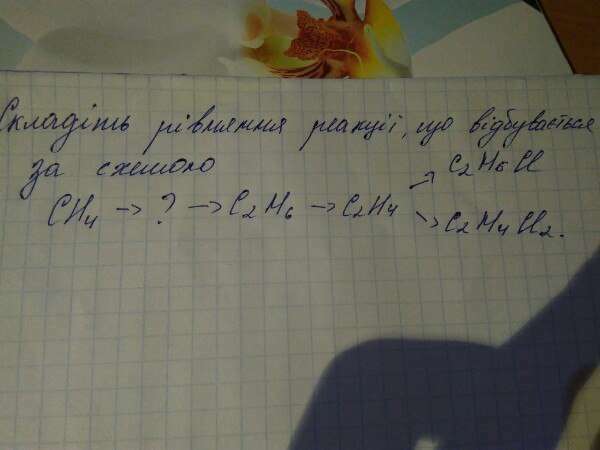 Складіть рівняння реакції, що відбувається
за схемою
CH4 → ? → C2H6 → C2H4 ↗ C2H5Cl
↘ C2H4Cl2.